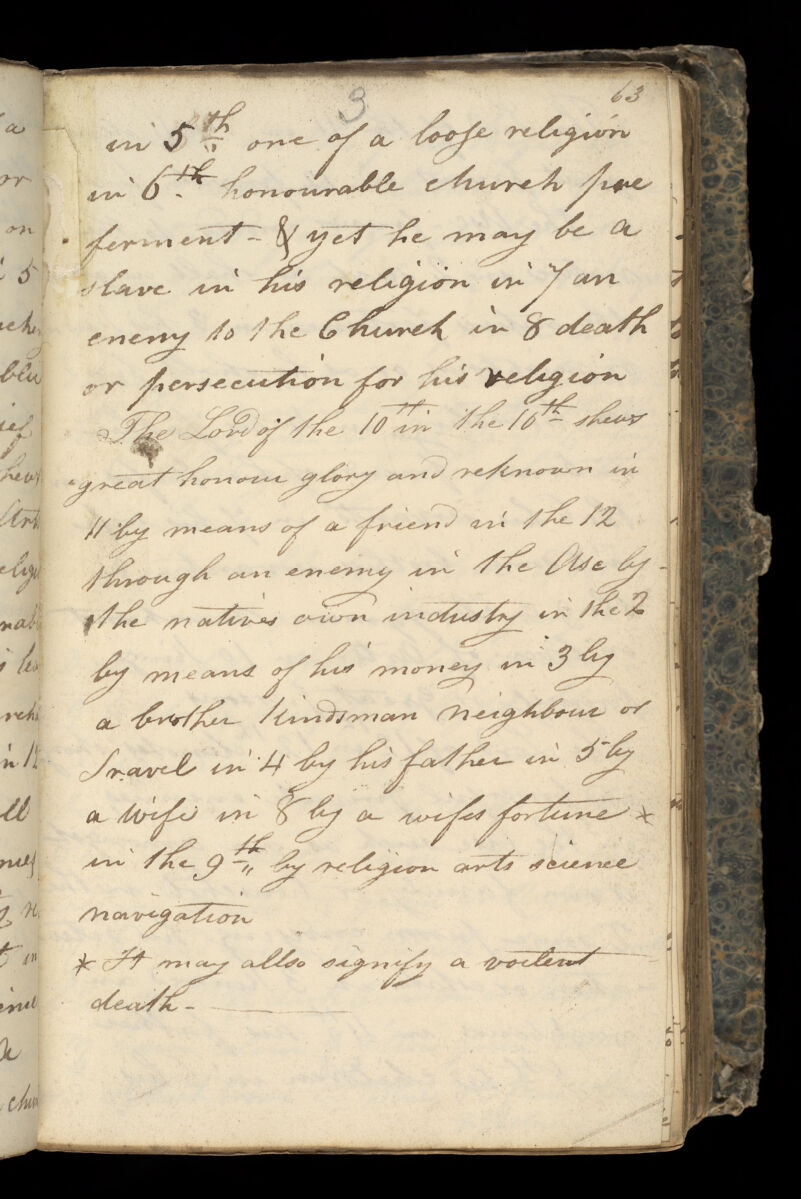 3
63
in 5th one of a loose religion
in 6th honourable church pre
ferment - & yet he may be a
slave in his religion in 7 an
enemy to the Church in 8 death
or persecution for his religion
The Lord of the 10th in the 10th shews
great honour glory and reknown in
11 by means of a friend in the 12
through an enemy in the Asc by
the natives own industry in the 2
by means of his money in 3 by
a brother kindsman neighbour or
Travel in 4 by his father in 5 by
a wife in 8 by a wifes fortune *
in the 9th by religion arts science
navigation
* It may allso signify a voilent
death -